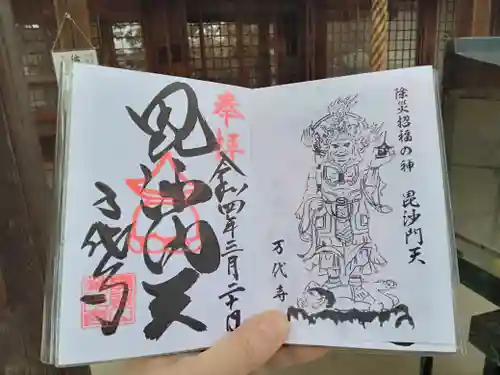 奉拝
令和四年三月二十日
毘沙門天
万代寺
除災招福の神 毘沙門天
万代寺